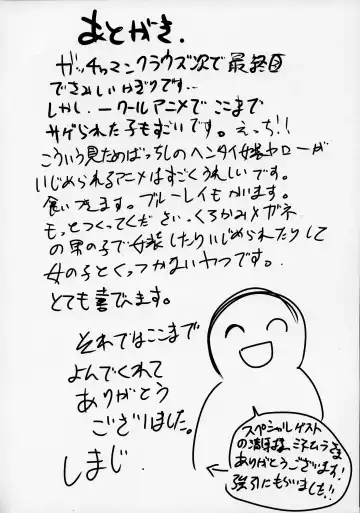 あとがき.
ガッチャマンクラウズ次で最終回
でさみしいかぎりです…
しかし、一クールアニメでここまで
サゲられた子もすごいです。えっち!!
こういう見ためばっちしのヘンタイ女装ヤローが
いじめられるアニメはすごくうれしいです。
食いつきます。ブルーレイもかいます。
もっとつくってください。くろかみメガネ
の男の子で女装したりいじめられたりして
女の子とくっつかないヤツです。
とても喜びます。
それではここまで
よんでくれて
ありがとう
ございました。
しまじ.
スペシャルゲスト
の ミネムラさま
ありがとうございます!
強引にもらいました!!